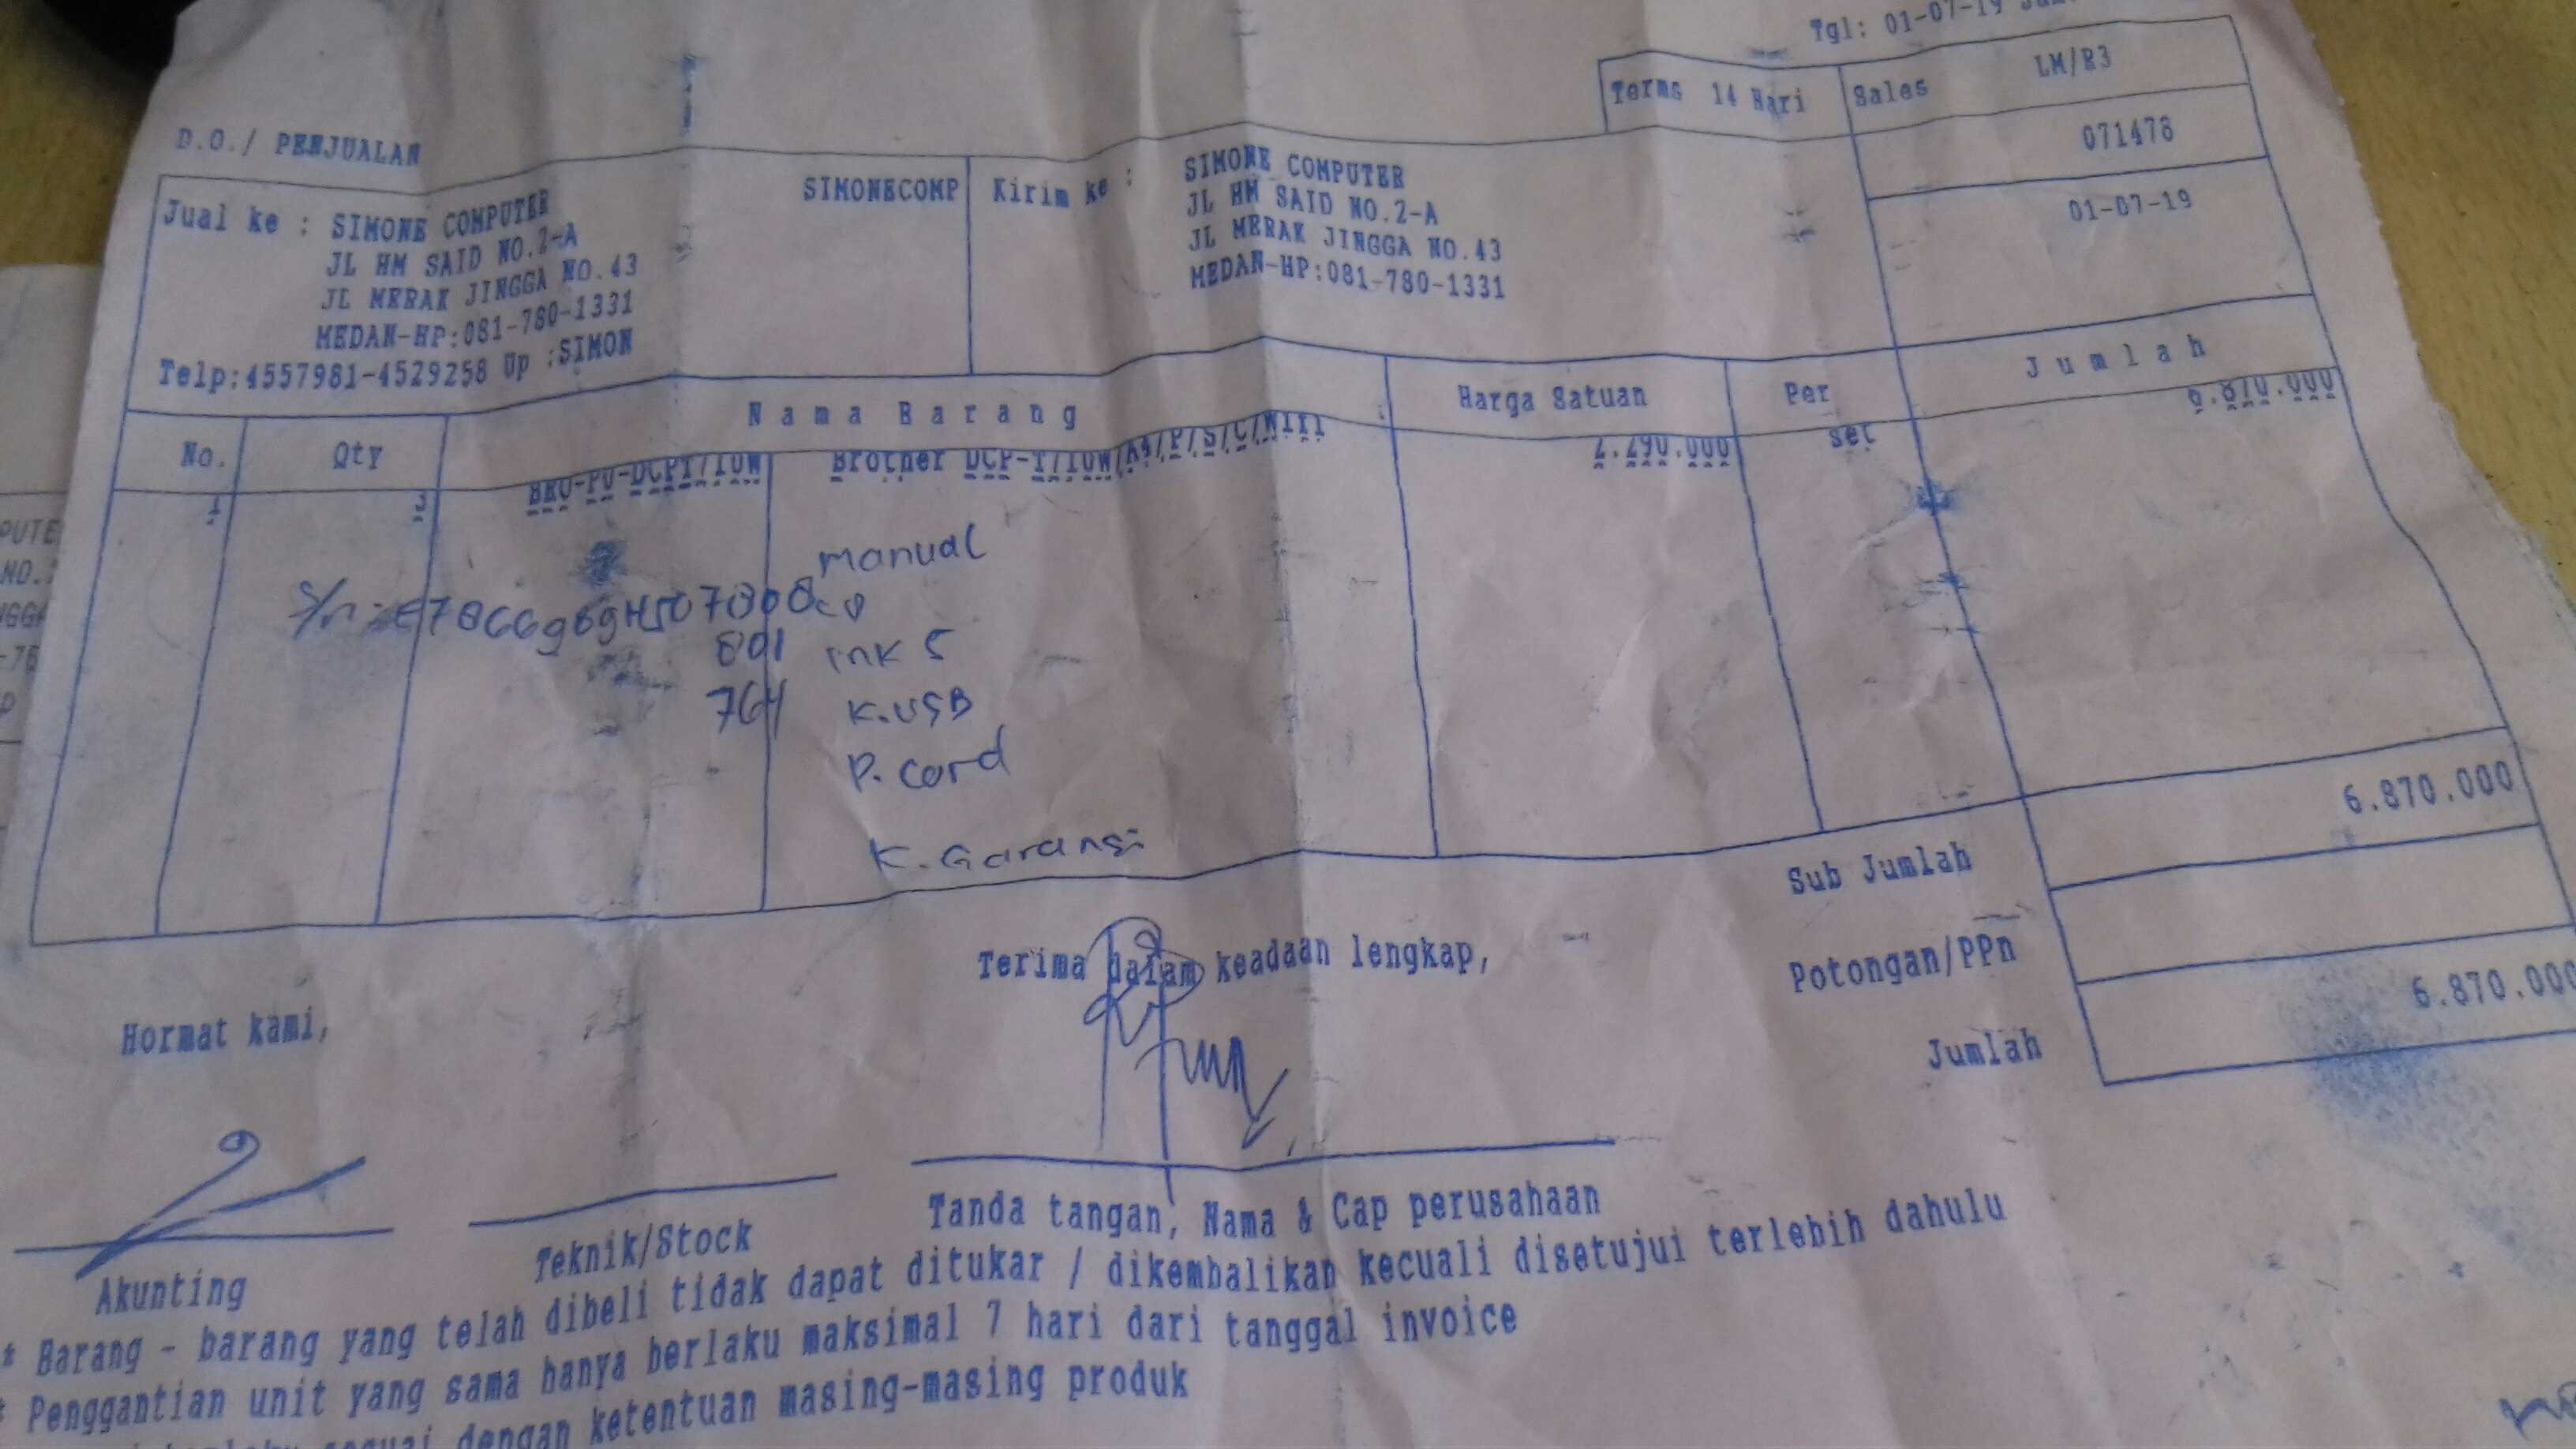 Tgl: 01-07-19
Terms 14 Hari
Sales LM/R3
D.O./ PENJUALAN
071478
01-07-19
Jual ke : SIMONE COMPUTER SIMONECOMP
JL HM SAID NO.2-A
JL MERAK JINGGA NO.43
MEDAN-HP:081-780-1331
Telp:4557981-4529258 Up :SIMON
Kirim ke : SIMONE COMPUTER
JL HM SAID NO.2-A
JL MERAK JINGGA NO.43
MEDAN-HP:081-780-1331
No. Qty Nama Barang Harga Satuan Per Jumlah
1 3 BRO-PU-DCPT710W Brother DCP-T710W/A4/P/S/C/Wifi 2.290.000 set 6.870.000
manual
801 ink 5
764 K.USB
P. cord
K. Garansi
Sub Jumlah 6.870.000
Potongan/PPn
Jumlah 6.870.000
Terima dalam keadaan lengkap,
Hormat kami,
Akunting
Teknik/Stock
Tanda tangan, Nama & Cap perusahaan
* Barang - barang yang telah dibeli tidak dapat ditukar / dikembalikan kecuali disetujui terlebih dahulu
* Penggantian unit yang sama hanya berlaku maksimal 7 hari dari tanggal invoice
sesuai dengan ketentuan masing-masing produk